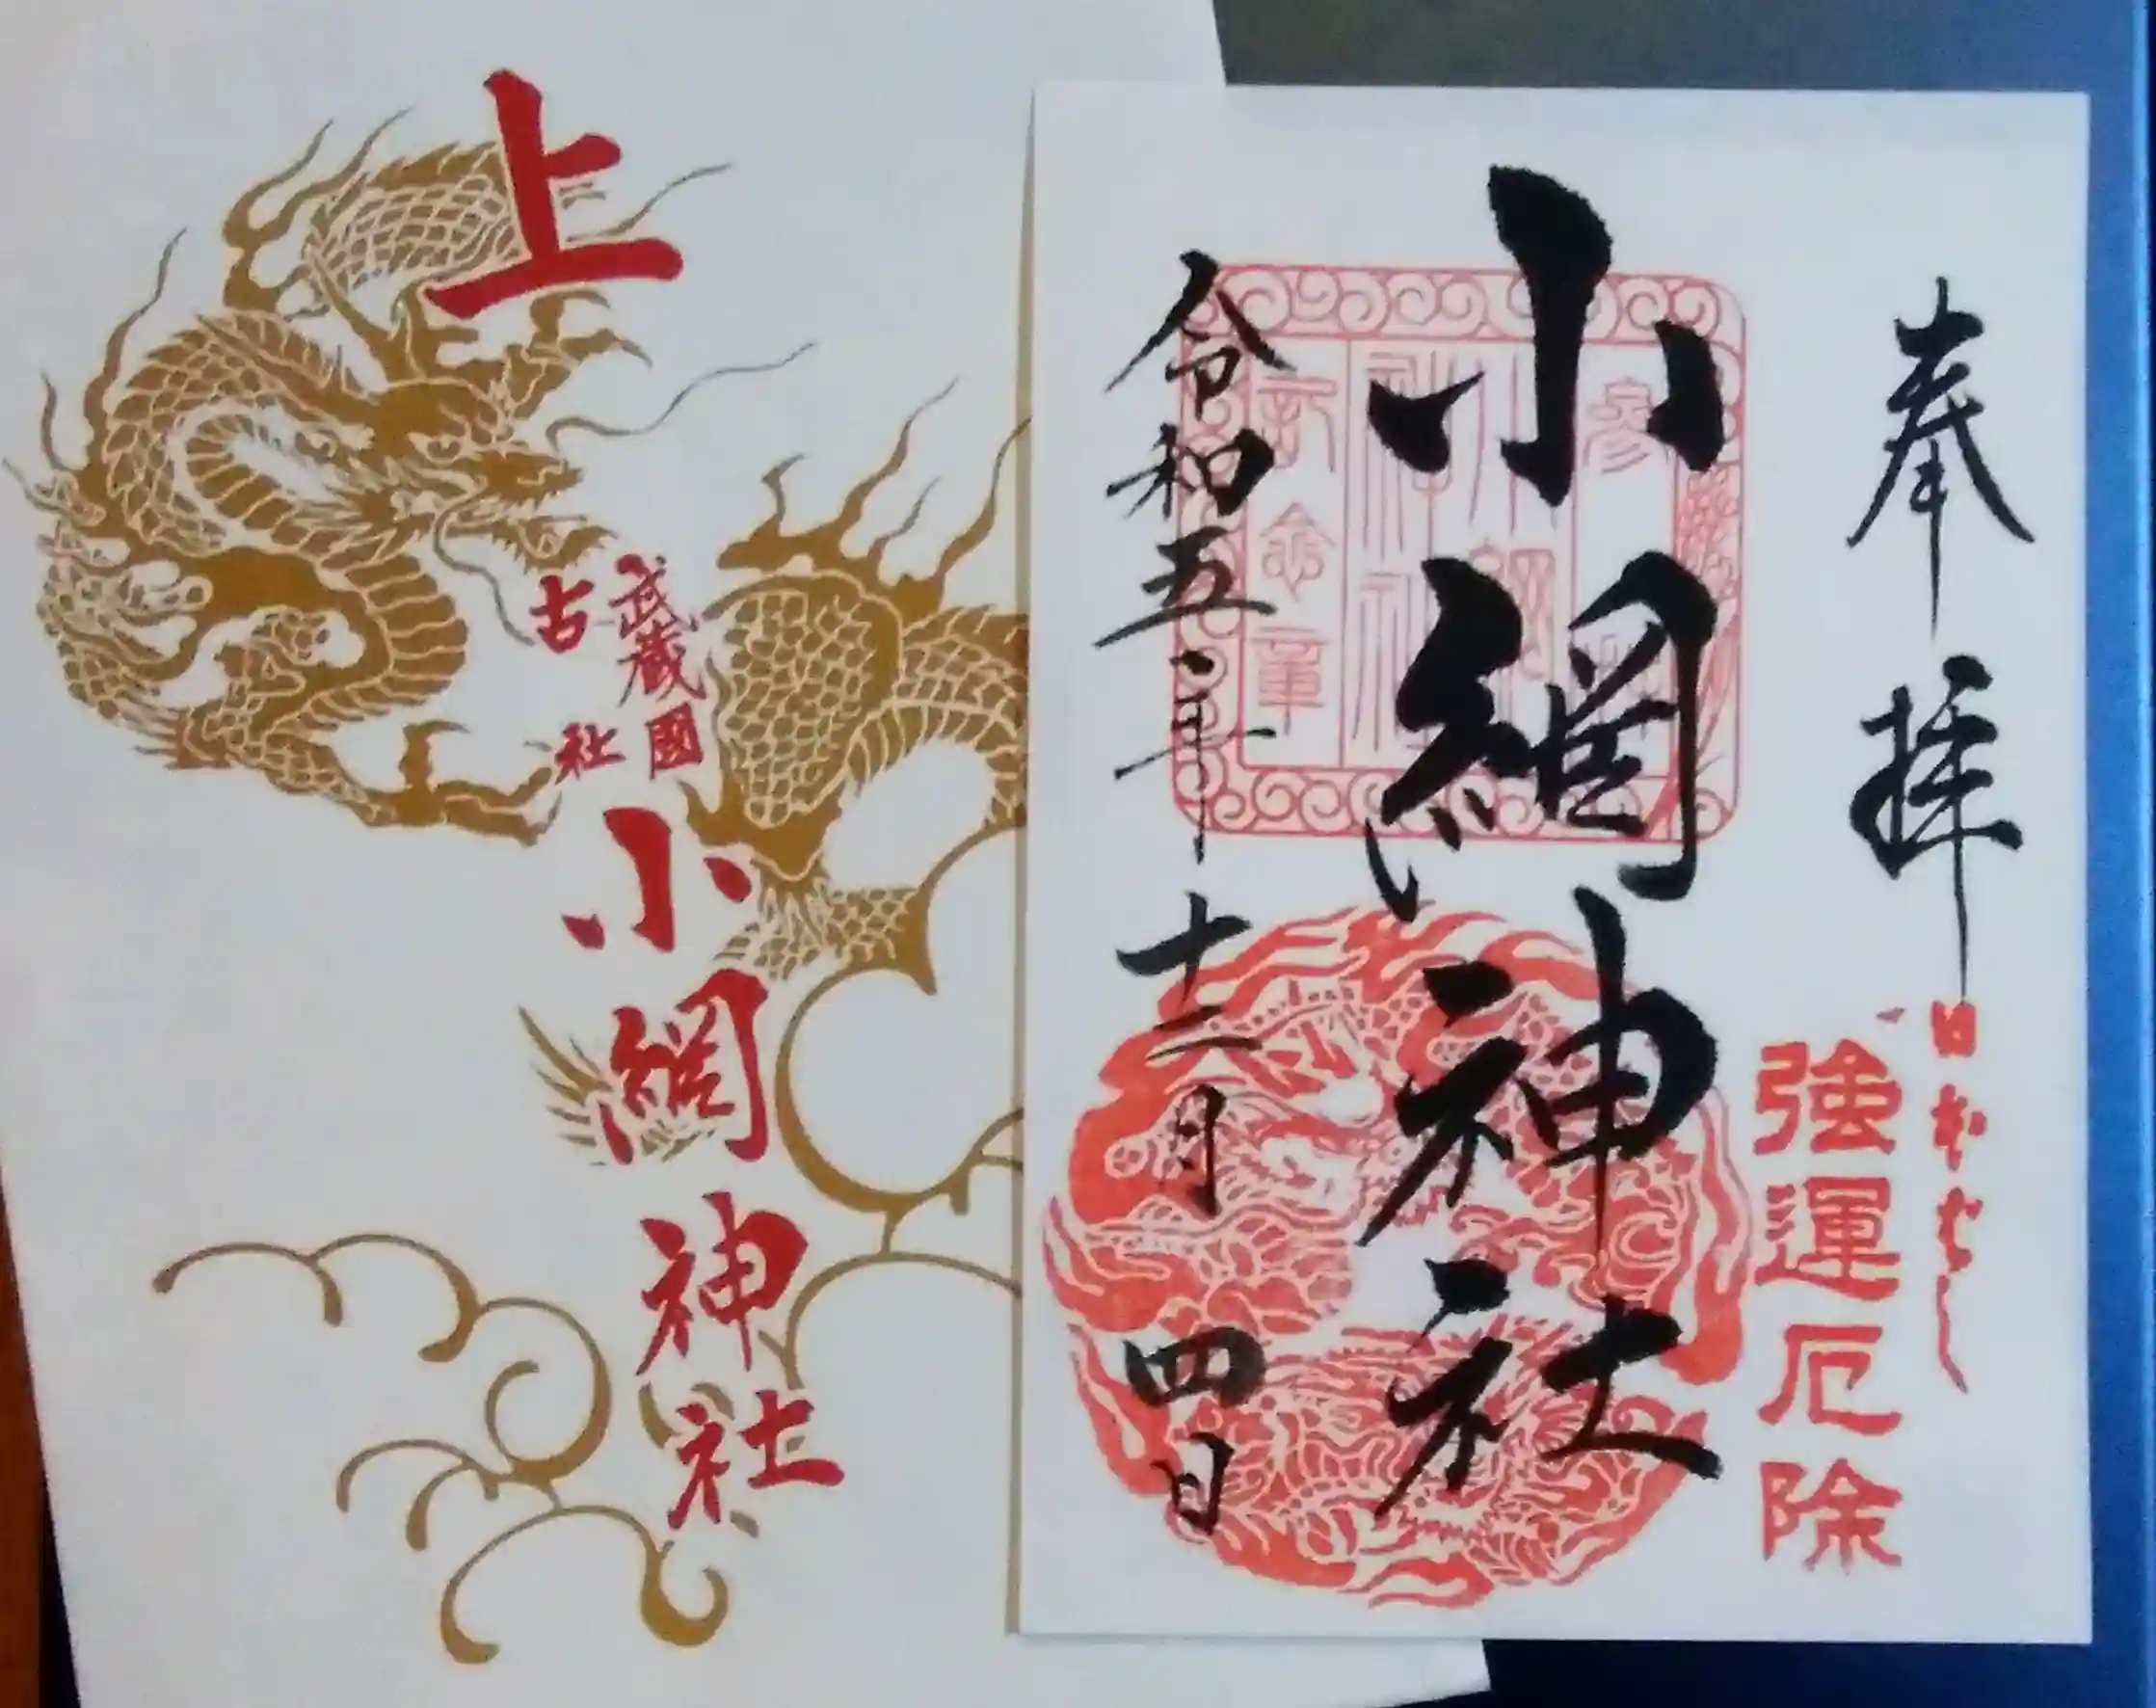 奉拝
日本ばし
強運厄除
小網神社
令和五年十二月四日
上
武蔵國
古社
小網神社